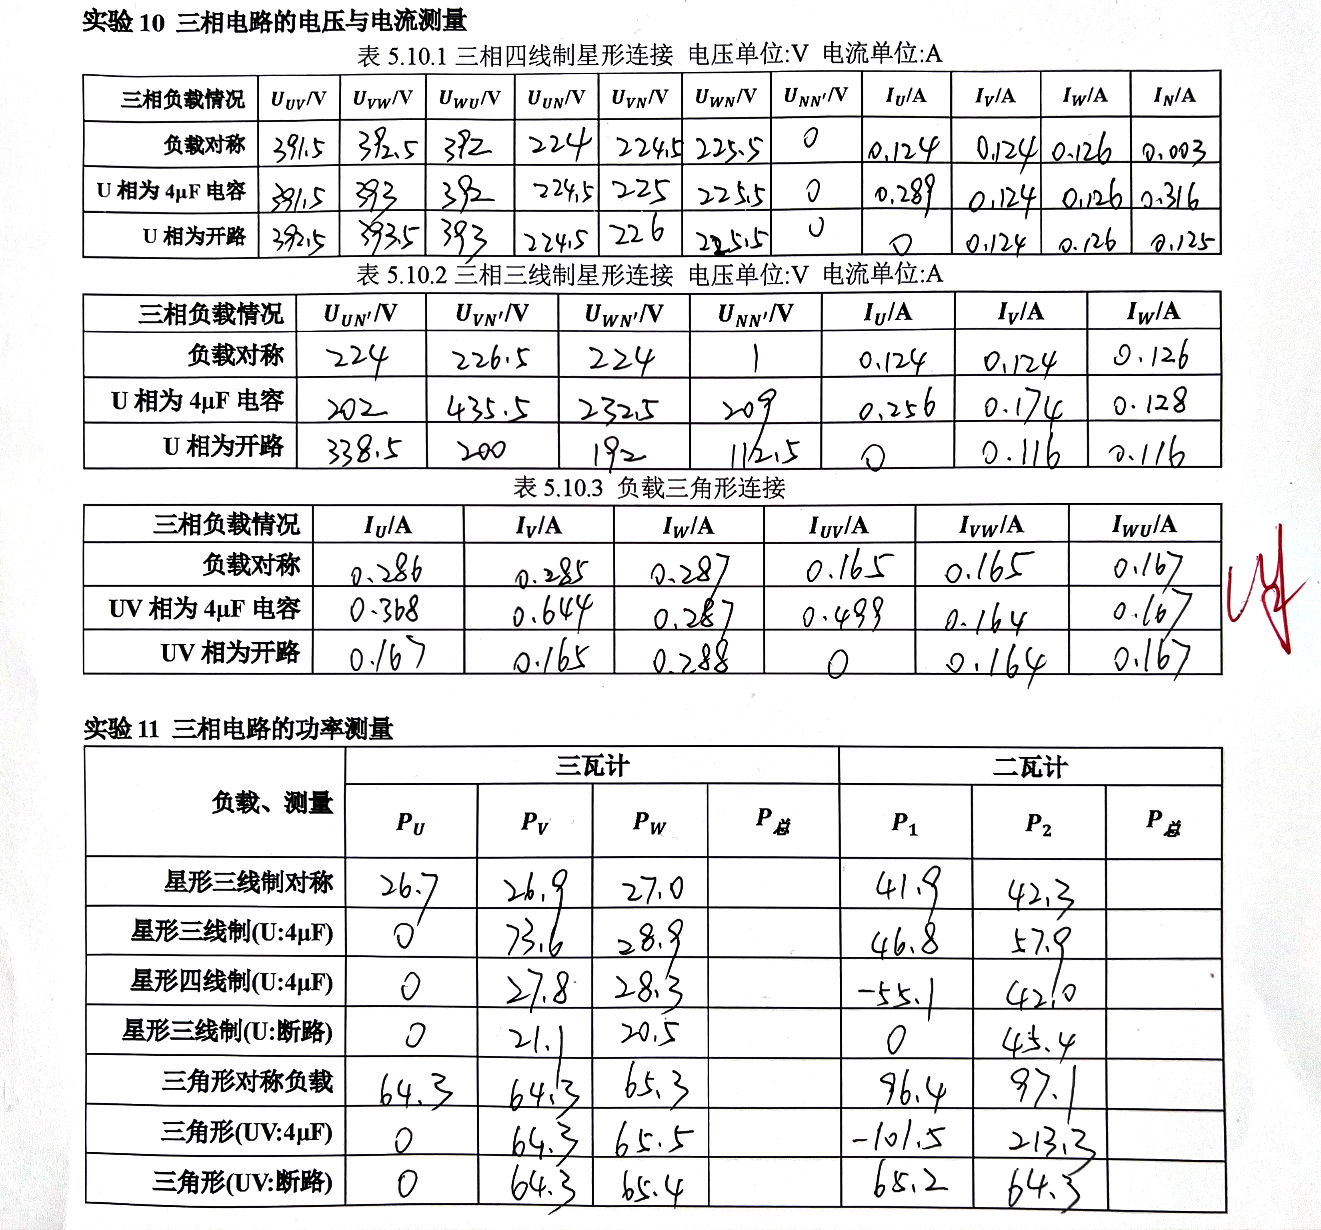 实验 10 三相电路的电压与电流测量
表 5.10.1 三相四线制星形连接 电压单位:V 电流单位:A
三相负载情况 U_UV/V U_VW/V U_WU/V U_UN/V U_VN/V U_WN/V U_NN'/V I_U/A I_V/A I_W/A I_N/A
负载对称 391.5 392.5 392 224 224.5 225.5 0 0.124 0.124 0.126 0.003
U 相为 4μF 电容 391.5 393 392 224.5 225 225.5 0 0.289 0.124 0.126 0.316
U 相为开路 392.5 393.5 393 224.5 226 225.5 0 0 0.124 0.126 0.125
表 5.10.2 三相三线制星形连接 电压单位:V 电流单位:A
三相负载情况 U_UN'/V U_VN'/V U_WN'/V U_NN'/V I_U/A I_V/A I_W/A
负载对称 224 226.5 224 1 0.124 0.124 0.126
U 相为 4μF 电容 202 435.5 232.5 209 0.256 0.174 0.128
U 相为开路 338.5 200 192 112.5 0 0.116 0.116
表 5.10.3 负载三角形连接
三相负载情况 I_U/A I_V/A I_W/A I_UV/A I_VW/A I_WU/A
负载对称 0.286 0.285 0.287 0.165 0.165 0.167
UV 相为 4μF 电容 0.368 0.644 0.287 0.499 0.164 0.167
UV 相为开路 0.167 0.165 0.288 0 0.164 0.167
实验 11 三相电路的功率测量
负载、测量 三瓦计 二瓦计
P_U P_V P_W P_总 P_1 P_2 P_总
星形三线制对称 26.7 26.9 27.0 41.9 42.3
星形三线制(U:4μF) 0 73.6 28.9 46.8 57.9
星形四线制(U:4μF) 0 27.8 28.3 -55.1 42.0
星形三线制(U:断路) 0 21.1 20.5 0 45.4
三角形对称负载 64.3 64.3 65.3 96.4 97.1
三角形(UV:4μF) 0 64.3 65.5 -101.5 213.3
三角形(UV:断路) 0 64.3 65.4 65.2 64.3